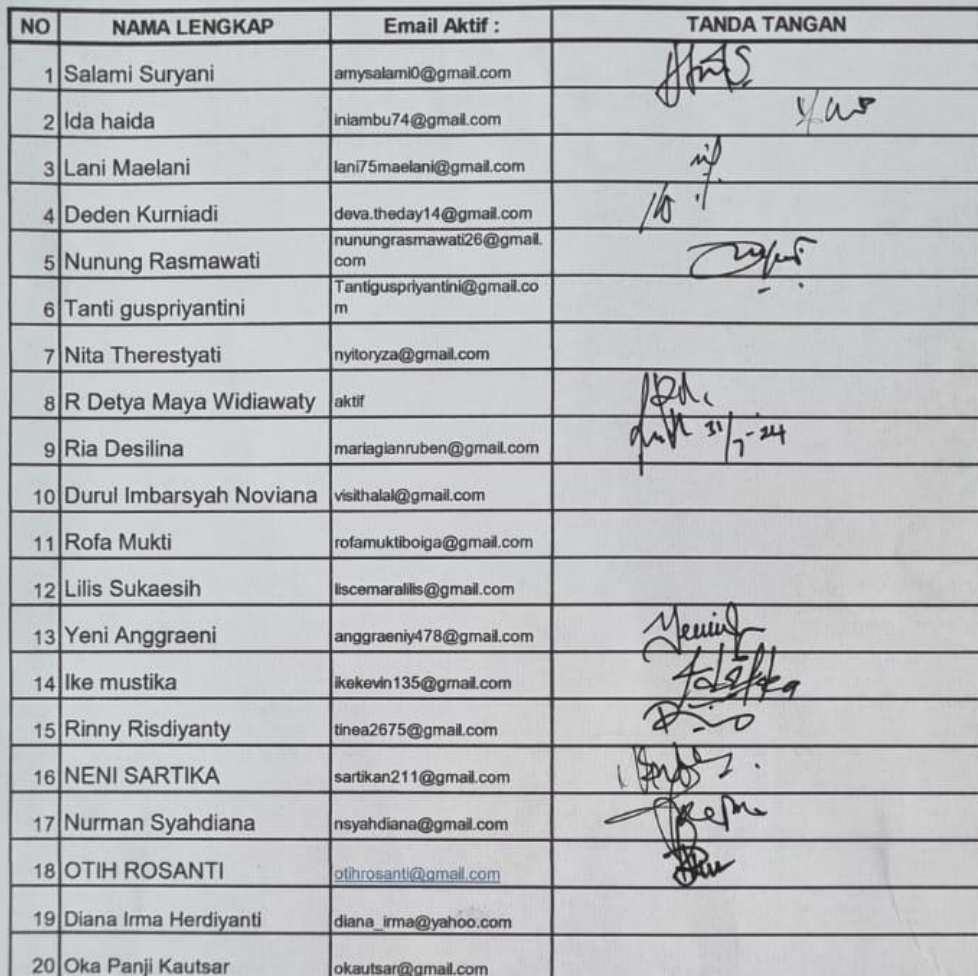 NO NAMA LENGKAP Email Aktif : TANDA TANGAN
1 Salami Suryani amysalami0@gmail.com
2 Ida haida iniambu74@gmail.com
3 Lani Maelani lani75maelani@gmail.com
4 Deden Kurniadi deva.theday14@gmail.com
5 Nunung Rasmawati nunungrasmawati26@gmail.
com
6 Tanti guspriyantini Tantiguspriyantini@gmail.co
m
7 Nita Therestyati nyitoryza@gmail.com
8 R Detya Maya Widiawaty aktif
9 Ria Desilina mariagianruben@gmail.com 31/7-24
10 Durul Imbarsyah Noviana visithalal@gmail.com
11 Rofa Mukti rofamuktiboiga@gmail.com
12 Lilis Sukaesih liscemaralilis@gmail.com
13 Yeni Anggraeni anggraeniy478@gmail.com
14 Ike mustika ikekevin135@gmail.com
15 Rinny Risdiyanty tinea2675@gmail.com
16 NENI SARTIKA sartikan211@gmail.com
17 Nurman Syahdiana nsyahdiana@gmail.com
18 OTIH ROSANTI otihrosanti@gmail.com
19 Diana Irma Herdiyanti diana_irma@yahoo.com
20 Oka Panji Kautsar okautsar@gmail.com